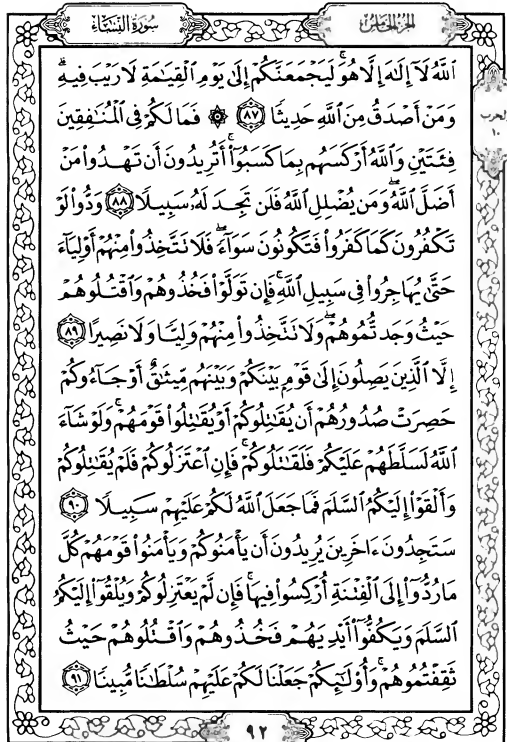 سُورَةُ النِّسَاءِ
الجُزْءُ الخَامِسُ
ٱللَّهُ لَآ إِلَٰهَ إِلَّا هُوَۚ لَيَجْمَعَنَّكُمْ إِلَىٰ يَوْمِ ٱلْقِيَٰمَةِ لَا رَيْبَ فِيهِۗ
وَمَنْ أَصْدَقُ مِنَ ٱللَّهِ حَدِيثًا ٨٧ ۞ فَمَا لَكُمْ فِى ٱلْمُنَٰفِقِينَ
فِئَتَيْنِ وَٱللَّهُ أَرْكَسَهُم بِمَا كَسَبُوٓا۟ۚ أَتُرِيدُونَ أَن تَهْدُوا۟ مَنْ
أَضَلَّ ٱللَّهُۖ وَمَن يُضْلِلِ ٱللَّهُ فَلَن تَجِدَ لَهُۥ سَبِيلًا ٨٨ وَدُّوا۟ لَوْ
تَكْفُرُونَ كَمَا كَفَرُوا۟ فَتَكُونُونَ سَوَآءًۖ فَلَا تَتَّخِذُوا۟ مِنْهُمْ أَوْلِيَآءَ
حَتَّىٰ يُهَاجِرُوا۟ فِى سَبِيلِ ٱللَّهِۚ فَإِن تَوَلَّوْا۟ فَخُذُوهُمْ وَٱقْتُلُوهُمْ
حَيْثُ وَجَدتُّمُوهُمْۖ وَلَا تَتَّخِذُوا۟ مِنْهُمْ وَلِيًّا وَلَا نَصِيرًا ٨٩
إِلَّا ٱلَّذِينَ يَصِلُونَ إِلَىٰ قَوْمٍۭ بَيْنَكُمْ وَبَيْنَهُم مِّيثَٰقٌ أَوْ جَآءُوكُمْ
حَصِرَتْ صُدُورُهُمْ أَن يُقَٰتِلُوكُمْ أَوْ يُقَٰتِلُوا۟ قَوْمَهُمْۚ وَلَوْ شَآءَ
ٱللَّهُ لَسَلَّطَهُمْ عَلَيْكُمْ فَلَقَٰتَلُوكُمْۚ فَإِنِ ٱعْتَزَلُوكُمْ فَلَمْ يُقَٰتِلُوكُمْ
وَأَلْقَوْا۟ إِلَيْكُمُ ٱلسَّلَمَ فَمَا جَعَلَ ٱللَّهُ لَكُمْ عَلَيْهِمْ سَبِيلًا ٩٠
سَتَجِدُونَ ءَاخَرِينَ يُرِيدُونَ أَن يَأْمَنُوكُمْ وَيَأْمَنُوا۟ قَوْمَهُمْ كُلَّ
مَا رُدُّوٓا۟ إِلَى ٱلْفِتْنَةِ أُرْكِسُوا۟ فِيهَاۚ فَإِن لَّمْ يَعْتَزِلُوكُمْ وَيُلْقُوٓا۟ إِلَيْكُمُ
ٱلسَّلَمَ وَيَكُفُّوٓا۟ أَيْدِيَهُمْ فَخُذُوهُمْ وَٱقْتُلُوهُمْ حَيْثُ
ثَقِفْتُمُوهُمْۚ وَأُو۟لَٰٓئِكُمْ جَعَلْنَا لَكُمْ عَلَيْهِمْ سُلْطَٰنًا مُّبِينًا ٩١
الحزب
١٠
٩٢